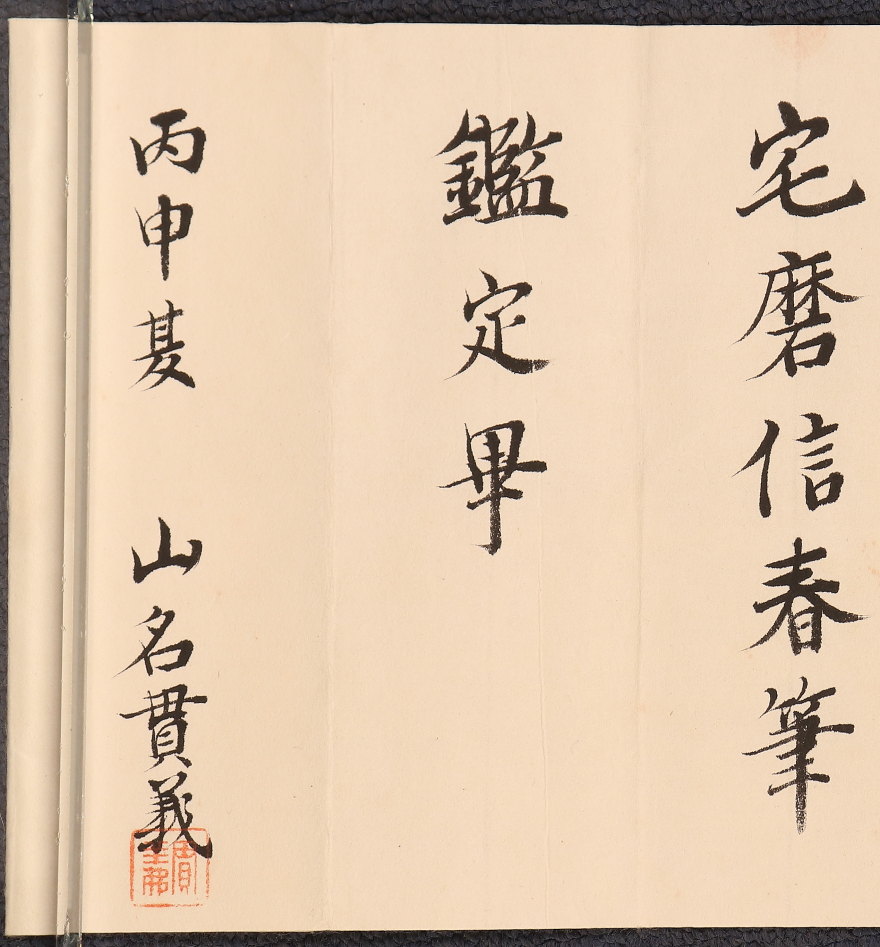 宅磨信春筆
鑑定畢
丙申夏 山名貫義